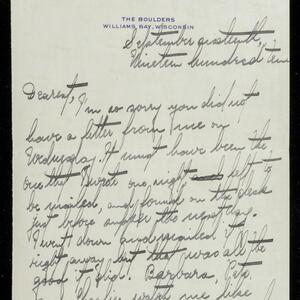 THE BOULDERS
WILLIAMS BAY, WISCONSIN
September sixteenth,
Nineteen hundred
Dearest,
I'm so sorry you did not
have a letter from me on
Wednesday. It must have been the
one that I wrote one night left to
be mailed, and found on the desk
just before supper the next day.
I went down and mailed it
right away but that was all the
good it did. Barbara,
with me like